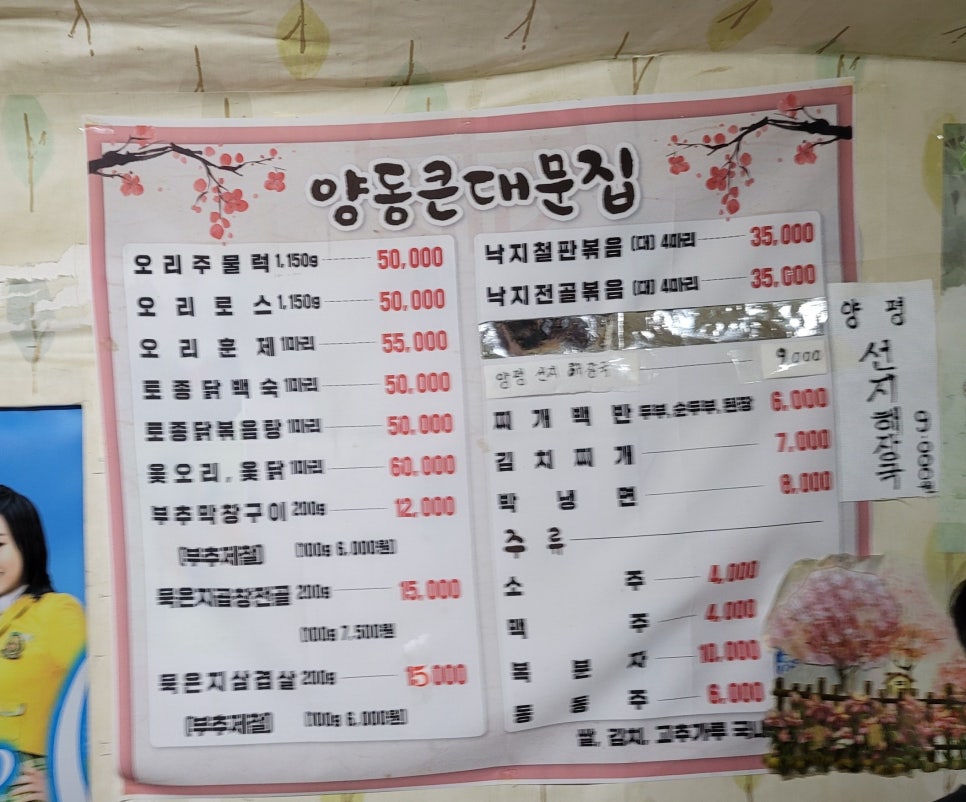 양동큰대문집
오리주물럭 1,150g 50,000
오리로스 1,150g 50,000
오리훈제 1마리 55,000
토종닭백숙 1마리 50,000
토종닭볶음탕 1마리 50,000
옻오리, 옻닭 1마리 60,000
부추막창구이 200g 12,000
(부추제철) (100g 6,000원)
묵은지곱창전골 200g 15,000
(100g 7,500원)
묵은지삼겹살 200g 15,000
(부추제철) (100g 6,000원)
낙지철판볶음 (대) 4마리 35,000
낙지전골볶음 (대) 4마리 35,000
양평 선지 해장국 9,000
찌개백반 두부,순두부,된장 6,000
김치찌개 7,000
막냉면 8,000
주류
소주 4,000
맥주 4,000
복분자 10,000
동동주 6,000
쌀, 김치, 고추가루 국내
양평
선지해장국
9,000원